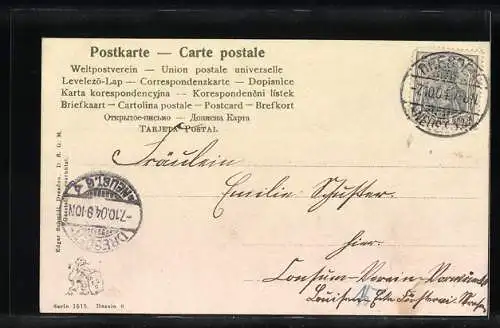 Postkarte — Carte postale
Weltpostverein — Union postale universelle
Levelező-Lap — Correspondenzkarte — Dopisnice
Karta korespondencyjna — Korespondenčni listek
Briefkaart — Cartolina postale — Postcard — Brefkort
Открытое-письмо — Дописна Карта
TARJETA POSTAL
7.10.04.
Fräulein
Emilie Schuster
hier.
Consum-Verein Vorwärts
Louisen Ecke
7.10.04.9-10N
DRESDEN
NEUST.6
Edgar Schmidt, Dresden. D. R. G. M.
Serie 1515. Dessin 6